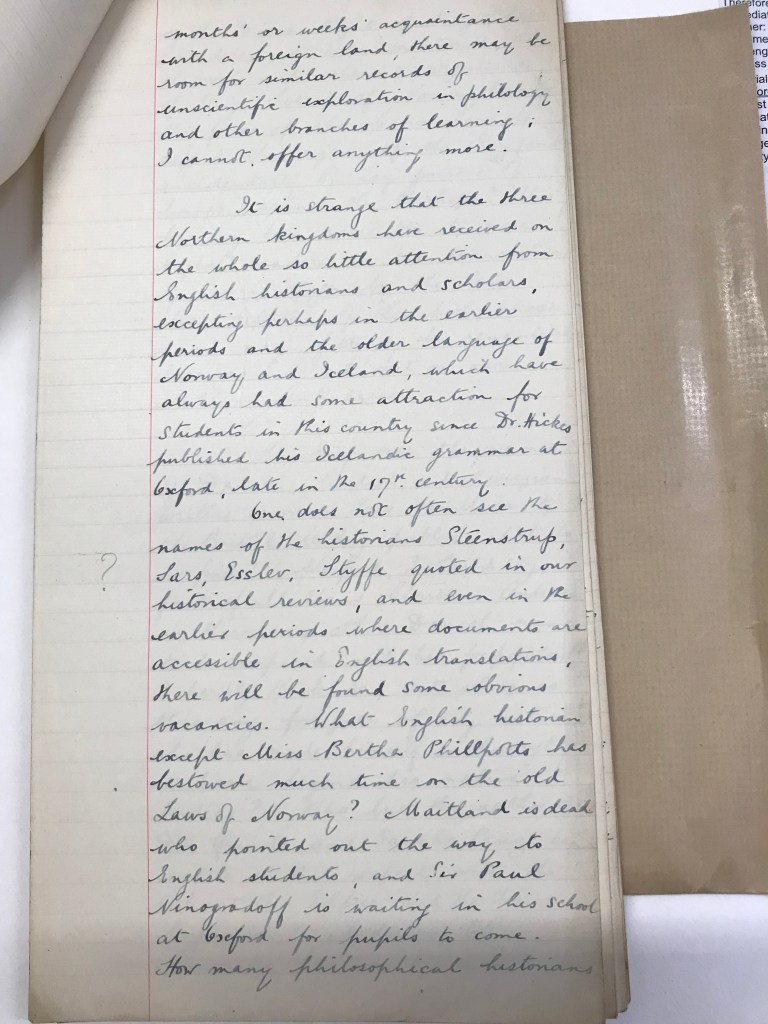 months' or weeks' acquaintance
with a foreign land, there may be
room for similar records of
unscientific exploration in philology
and other branches of learning;
I cannot offer anything more.
It is strange that the three
Northern kingdoms have received on
the whole so little attention from
English historians and scholars,
excepting perhaps in the earlier
periods and the older language of
Norway and Iceland, which have
always had some attraction for
students in this country since Dr. Hickes
published his Icelandic grammar at
Oxford, late in the 17th century.
One does not often see the
names of the historians Steenstrup,
? Sars, Esslev, Styffe quoted in our
historical reviews, and even in the
earlier periods where documents are
accessible in English translations,
there will be found some obvious
vacancies. What English historian
except Miss Bertha Phillpotts has
bestowed much time on the old
Laws of Norway? Maitland is dead
who pointed out the way to
English students, and Sir Paul
Vinogradoff is waiting in his school
at Oxford for pupils to come.
How many philosophical historians
Therefore